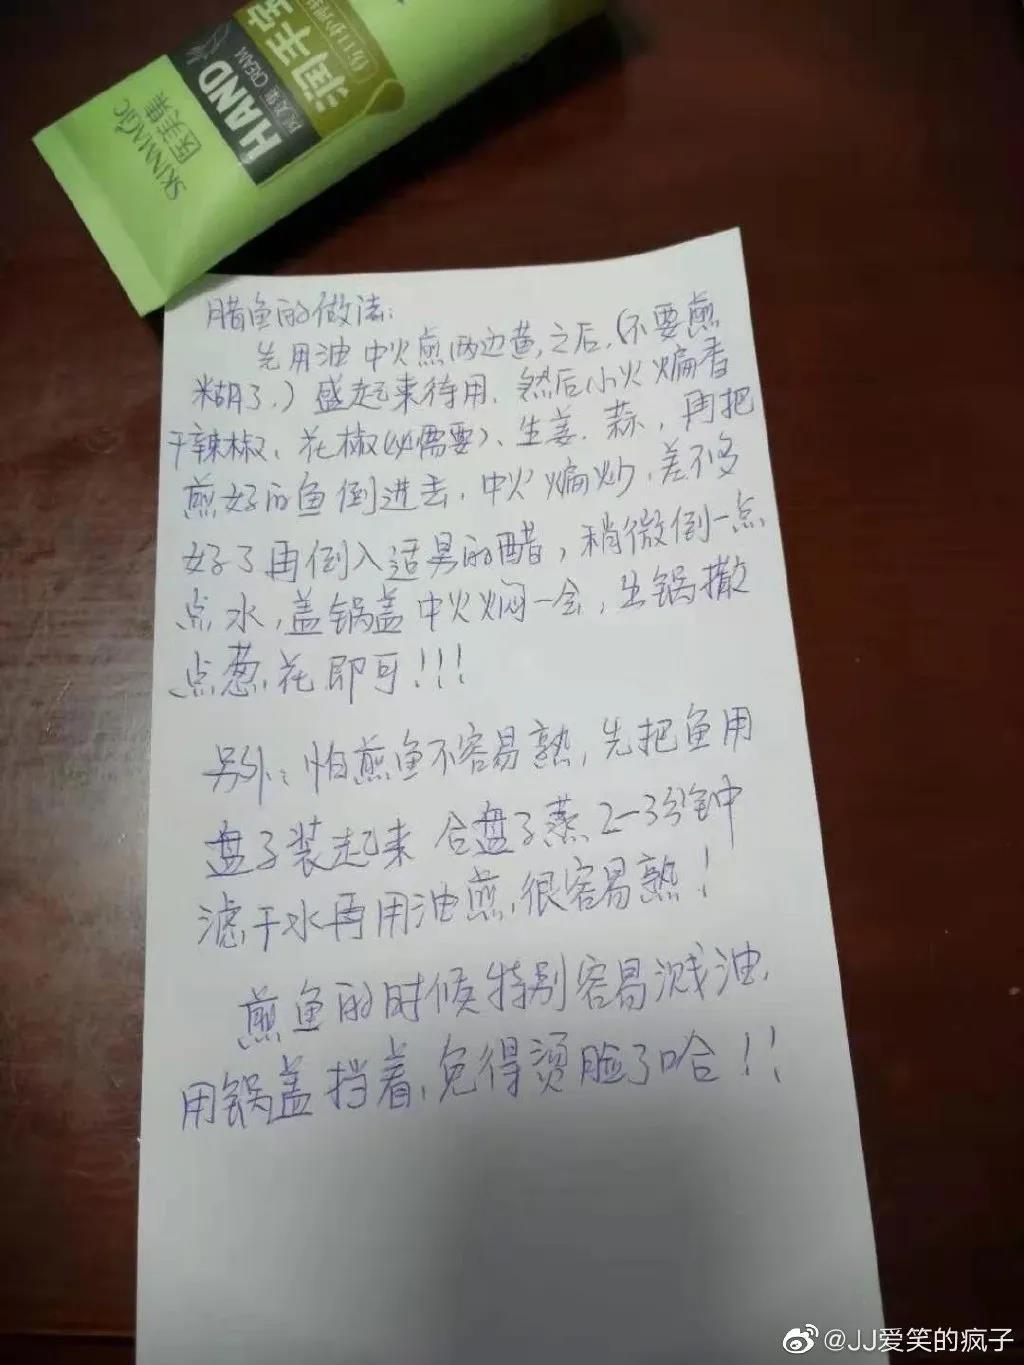 SKINMAGIC
医美雅
HAND
医美雅 CREAM
润手
腊鱼的做法:
先用油中火煎两边黄,之后,(不要煎
糊了,)盛起来待用.然后小火煸香
干辣椒、花椒(必需要)、生姜.蒜,再把
煎好的鱼倒进去,中火煸炒,差不多
好了再倒入适男的醋,稍微倒一点
点水,盖锅盖中火焖一会,出锅撒
点葱花即可!!!
另外:怕煎鱼不容易熟,先把鱼用
盘子装起来 合盘子蒸2-3分钟
滤干水再用油煎,很容易熟!
煎鱼的时候特别容易溅油,
用锅盖挡着,免得烫脸了哈!!
@JJ爱笑的疯子